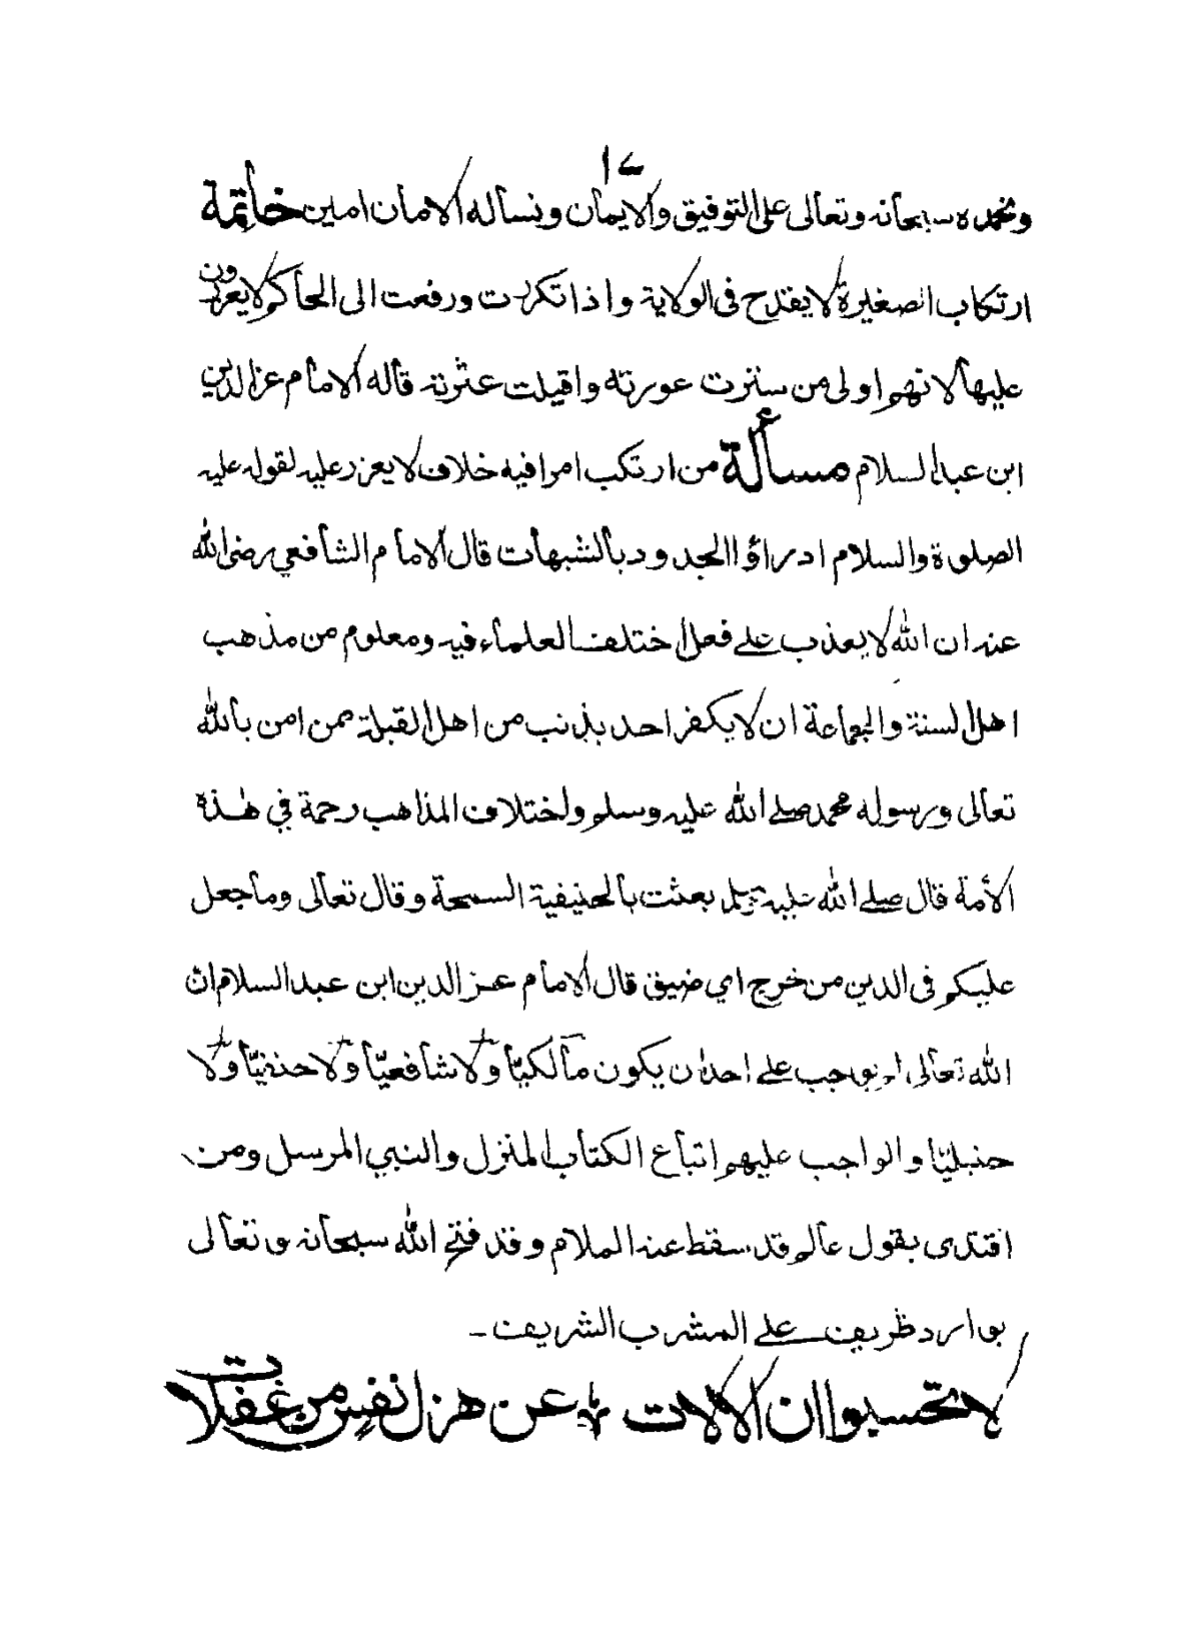 ١٧
ونحمده سبحانه وتعالى على التوفيق والايمان ونساله الامان امين خاتمة
ارتكاب الصغيرة لا يقدح فى الولاية واذا تكررت ورفعت الى الحاكم لا يعزرون
عليها لانهم اولى من سترت عورته واقيلت عثرته قاله الامام عز الدين
ابن عبد السلام مسألة من ارتكب امرا فيه خلاف لا يعزر عليه لقوله عليه
الصلوة والسلام ادراؤا الحدود بالشبهات قال الامام الشافعي رضى الله
عنه ان الله لا يعذب على فعل اختلف العلماء فيه ومعلوم من مذهب
اهل السنة والجماعة ان لا يكفر احد بذنب من اهل القبلة ممن امن بالله
تعالى ورسوله محمد صلى الله عليه وسلم واختلاف المذاهب رحمة في هذه
الأمة قال صلى الله عليه وسلم بعثت بالحنيفية السمحة وقال تعالى وما جعل
عليكم فى الدين من خرج اي ضيق قال الامام عز الدين ابن عبد السلام ان
الله تعالى لم يوجب على احد ان يكون مالكيّا ولا شافعيّا ولا حنفيّا ولا
حنبليّا والواجب عليهم اتباع الكتاب المنزل والنبي المرسل ومن
اقتدى بقول عالم قد سقط عنه الملام وقد فتح الله سبحانه وتعالى
بوارد ظريف على المشرب الشريف -
لا تحسبوا ان الالات عن هزل نفس من غفلات